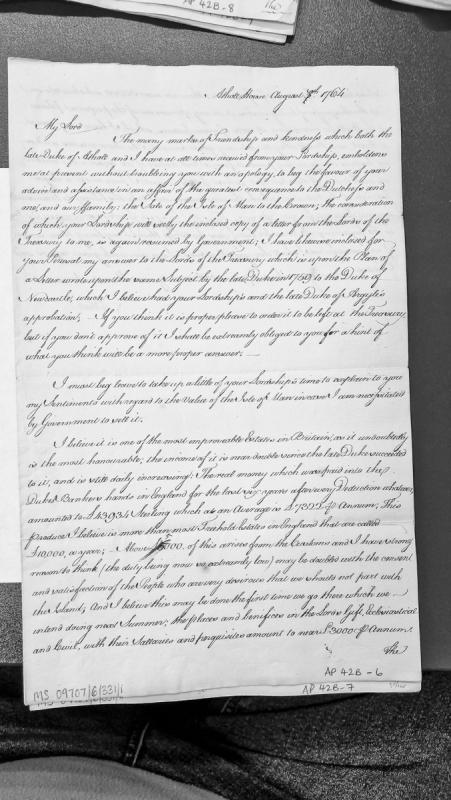 AP 42B-8
The
Atholl House August 7th 1764
My Lord
The many marks of Friendship and kindness which both the
late Duke of Atholl and I have at all times received from your Lordship, emboldens
me at present without troubling you with an apology, to beg the favour of your
advice and assistance in an affair of the greatest consequence to the Dutchess and
me, and our Family: the Sale of the Isle of Man to the Crown; the consideration
of which, your Lordship will see by the enclosed copy of a letter from the Lords of the
Treasury to me, is again resumed by Government; I have however inclosed for
your Perusal my answer to the Lords of the Treasury which is upon the Plan of
a Letter wrote upon the same Subject by the late Duke in 1759 to the Duke of
Newcastle, which I believe had your Lordship's and the late Duke of Argyll's
approbation; - If you think it is proper please to order it to be left at the Treasury
but if you don't approve of it I shall be extreamly obliged to you for a hint of
what you think will be a more proper answer. -
I must beg leave to take up a little of your Lordship's time to explain to you
my Sentiments with regard to the Value of the Isle of Man in case I am necessitated
by Government to sell it.
I believe it is one of the most improveable Estates in Britain, as it undoubtedly
is the most honourable; the income of it is near double since the late Duke succeeded
to it, and is still daily increasing: The real money which was paid into the
Duke's Bankers hands in England for the last six years after every Deduction whatever,
amounted to £43934 Sterling which at an Average is £7322 p Annum; This
produce I believe is more than most Freehold Estates in England that are called
£10000, a year; - Above 000, of this arises from the Customs and I have strong
reason to think (the duty being now so extreamly low) may be doubled with the consent
and satisfaction of the People who are very desirous that we should not part with
the Island; And I believe this may be done the first time we go there which we
intend doing next Summer; the places and benifices in the Lords Gift, Ecclesiastical
and Civil, with their Sallaries and perquisites amount to near £3000 p Annum.
The
AP 42B-6
MS 09707/6/331/1
AP 42B-7